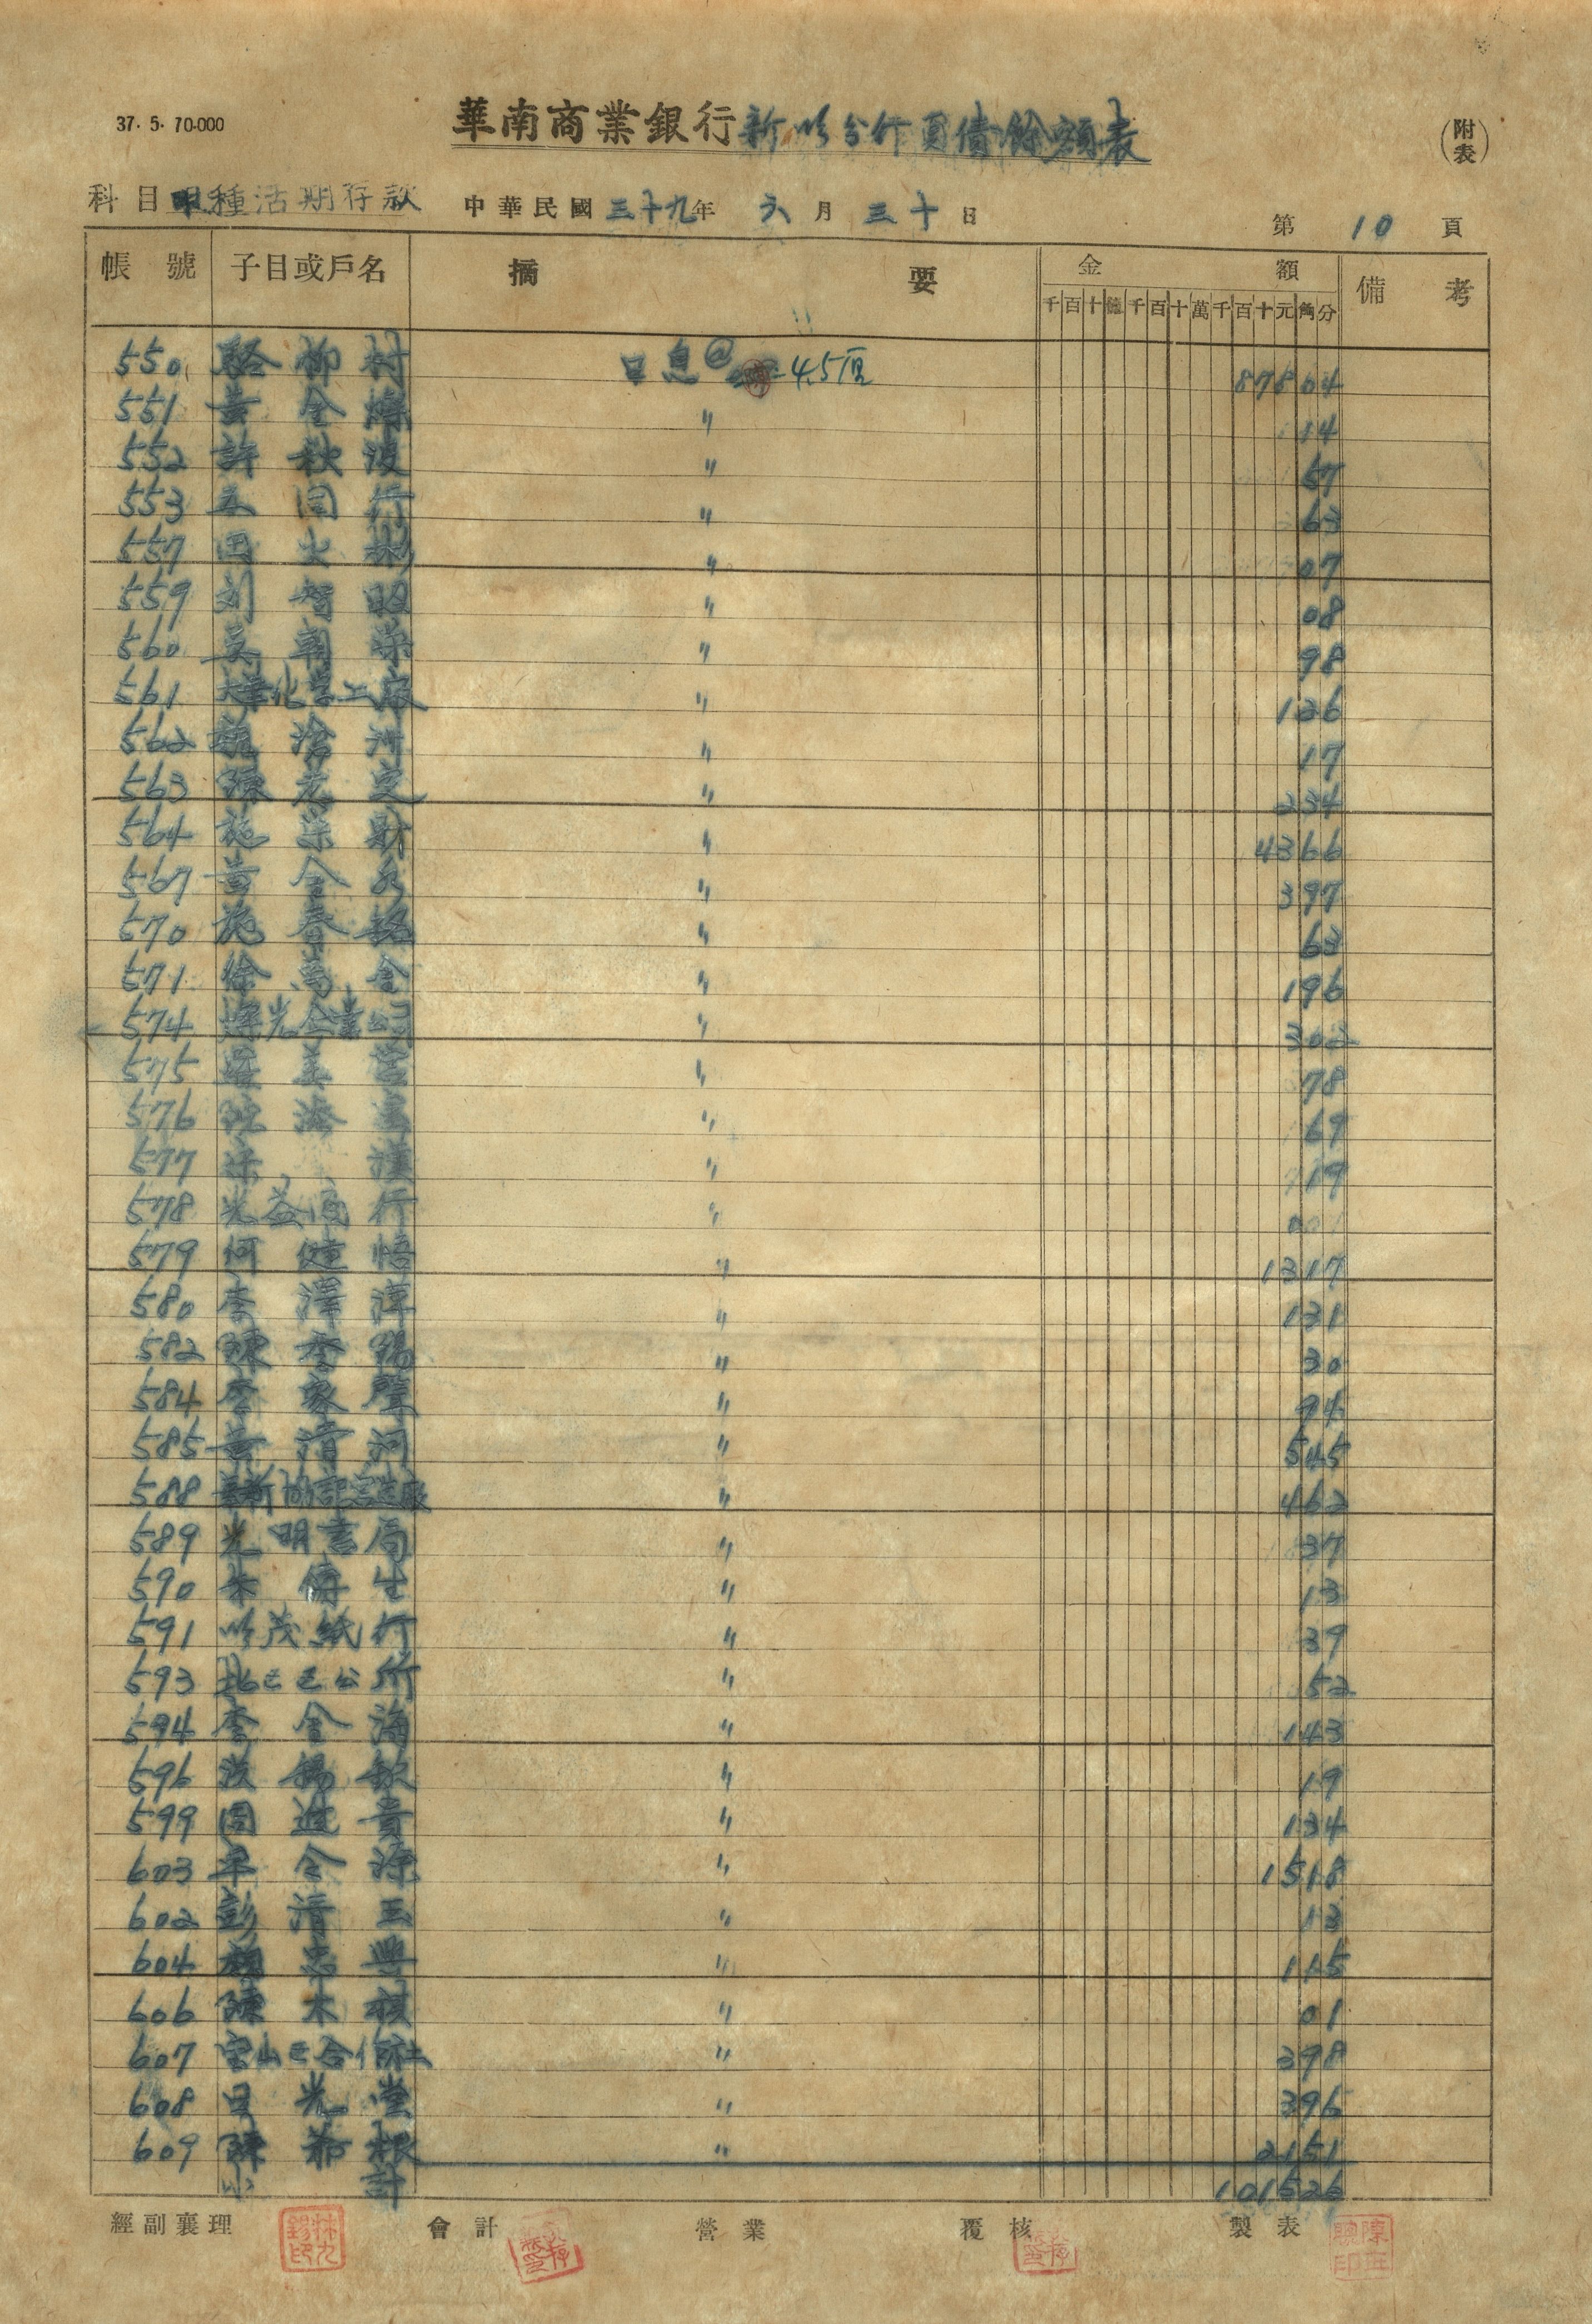 37.5.70.000
華南商業銀行新竹分行負債餘額表
(附表)
科目 種活期存款 中華民國三十九年六月三十日 第10頁
帳號 子目或戶名 摘要 金額 備考
千百十億千百十萬千百十元角分
550 駱柳村 日息@ 4.5 87804
551 黃金 〃 14
552 許秋波 〃 57
553 永同行 〃 63
557 田火 〃 07
559 刘智昭 〃 08
560 吳朝榮 〃 98
561 化學工廠 〃 126
562 滄 〃 17
563 陳老定 〃 234
564 施榮財 〃 4366
567 黃金水 〃 397
570 施春 〃 63
571 徐萬金 〃 196
574 光企業公司 〃 302
575 美 〃 78
576 〃 69
577 漢 〃 19
578 光益 行 〃 001
579 何健悟 〃 1317
580 李澤淳 〃 131
582 陳李錫 〃 30
584 李家 〃 94
585 黃清河 〃 545
588 新協記 廠 〃 462
589 光明書局 〃 37
590 朱傳生 〃 13
591 竹茂紙行 〃 39
593 北區區公所 〃 52
594 李金海 〃 143
596 錫欽 〃 19
599 周進貴 〃 134
603 金源 〃 1518
602 彭清玉 〃 13
604 忠興 〃 115
606 陳木棋 〃 01
607 宝山 合作社 〃 398
608 日光堂 〃 396
609 陳 根 〃 2151
小計 101526
經副襄理 會計 營業 覆核 製表
林九錫印